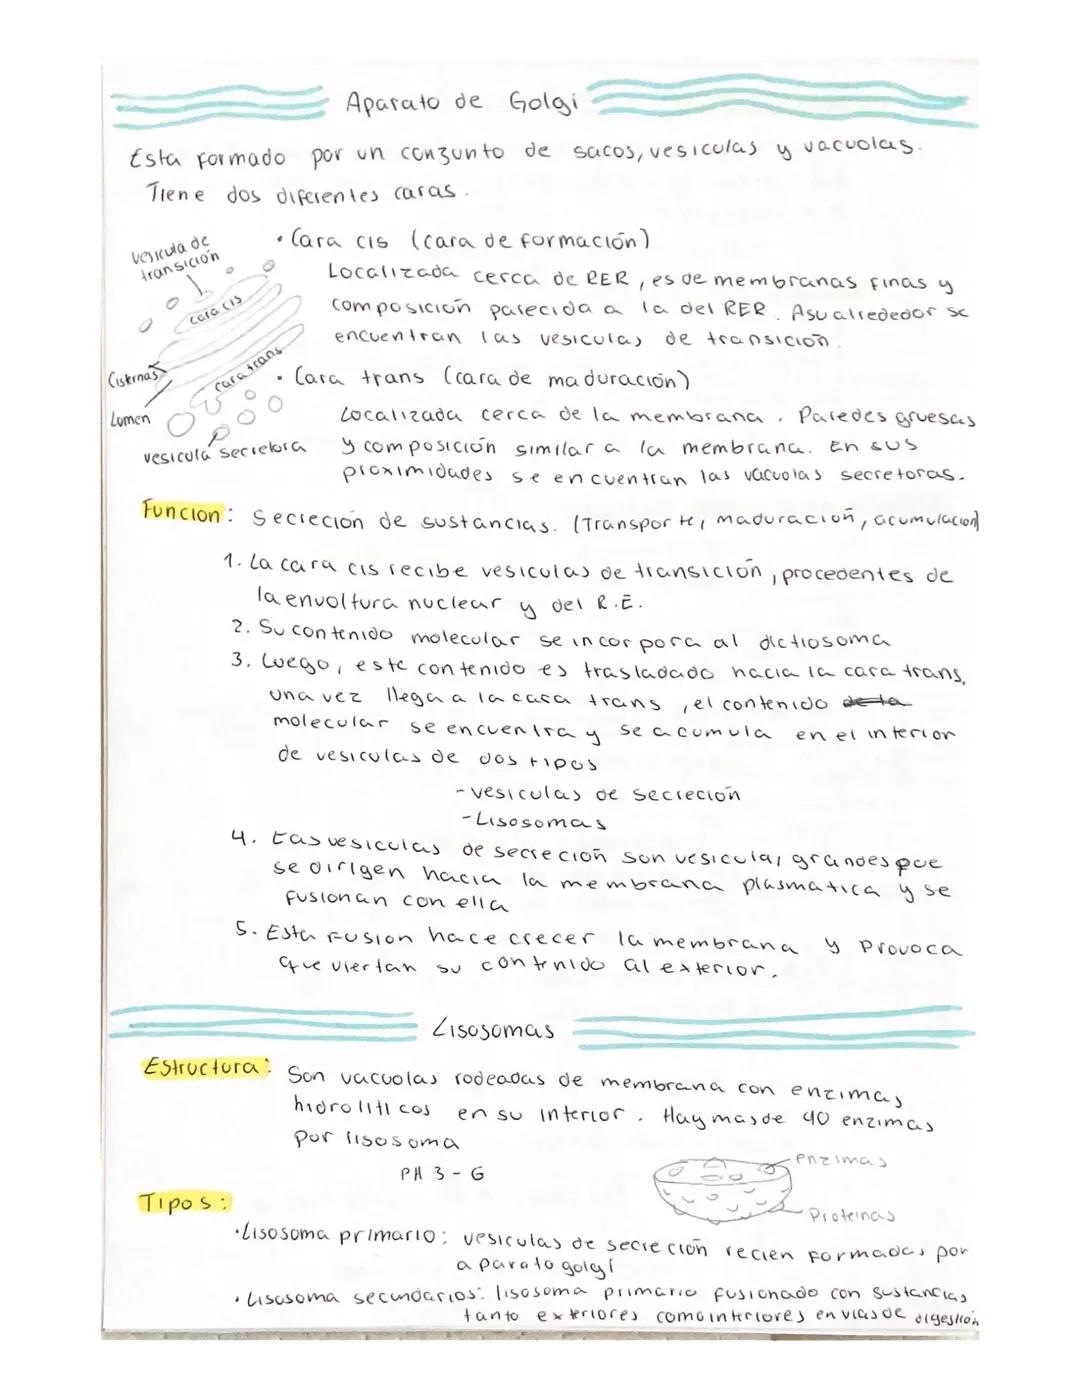 Aparato de Golgi
Esta formado por un conzunto de sacos, vesiculas y vacuolas.
Tiene dos diferentes caras.
vesicula de
transición
cara cis
Cisternas
cara trans
Lumen
vesicula secretora
• Cara cis (cara de formación)
Localizada cerca de RER, es de membranas finas y
composición parecida a la del RER. Asu alrededor se
encuentran las vesiculas de transición.
• Cara trans (cara de maduración)
Localizada cerca de la membrana. Paredes gruesas
y composición similar a la membrana. En sus
proximidades se encuentran las vacuolas secretoras.
Funcion: Secreción de sustancias. (Transporte, maduración, acumulacion)
1. La cara cis recibe vesiculas de transición, procedentes de
la envoltura nuclear y del R.E.
2. Su contenido molecular se incorpora al dictiosoma
3. Luego, este contenido es trasladado hacia la cara trans,
una vez llega a la cara trans, el contenido de la
molecular se encuentra y se acumula en el interior
de vesiculas de dos tipos
- vesiculas de secreción
- Lisosomas
4. Las vesiculas de secreción son vesiculas grandes que
se dirigen hacia la membrana plasmatica y se
fusionan con ella
5. Esta fusion hace crecer la membrana y provoca
que viertan su contenido al exterior.
Lisosomas
Estructura: Son vacuolas rodeadas de membrana con enzimas
hidroliticos en su interior. Hay mas de 40 enzimas
por lisosoma
PH 3 - 6
enzimas
Proteinas
Tipos:
• Lisosoma primario: vesiculas de secreción recien formadas por
aparato golgi
• Lisosoma secundarios: lisosoma primario fusionado con sustancias
tanto exteriores como interiores en vias de digestión